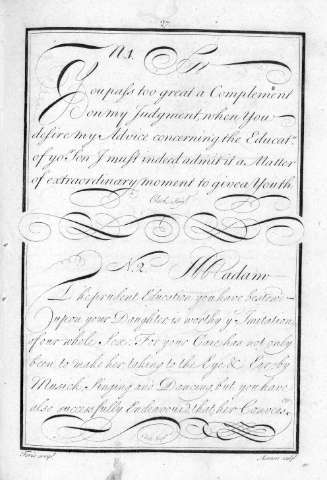 27
N.1. Sir
You pass too great a Complement
on my Judgment, when You
desire my Advice concerning the Educat.n
of yo.r Son I must indeed admit it a Matter
of extraordinary moment to give a Youth
N.2. Madam
The prudent Education you have bestow'd
upon your Daughter, is worthy y.e Imitation
of our whole Sex: For your Care has not only
been to make her taking to the Eye & Ear, by
Musick, Singing and Dancing, but you have
also successfully Endeavour'd, that her Convers.
scrip.t
sculp.t